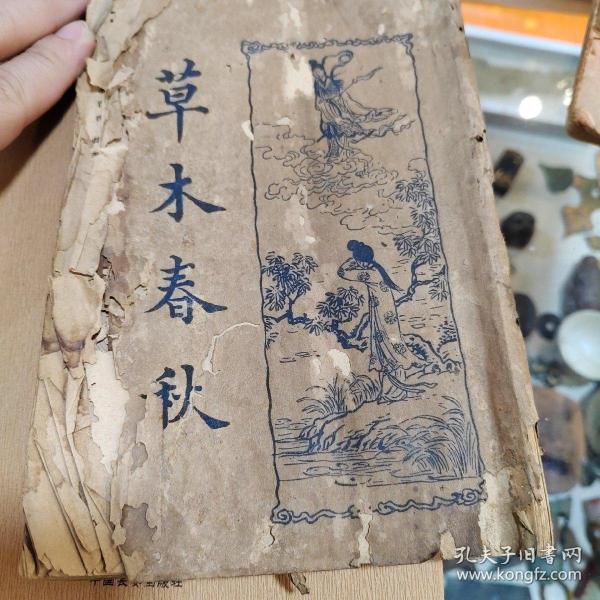 草木春秋
孔夫子旧書网
www.kongfz.com